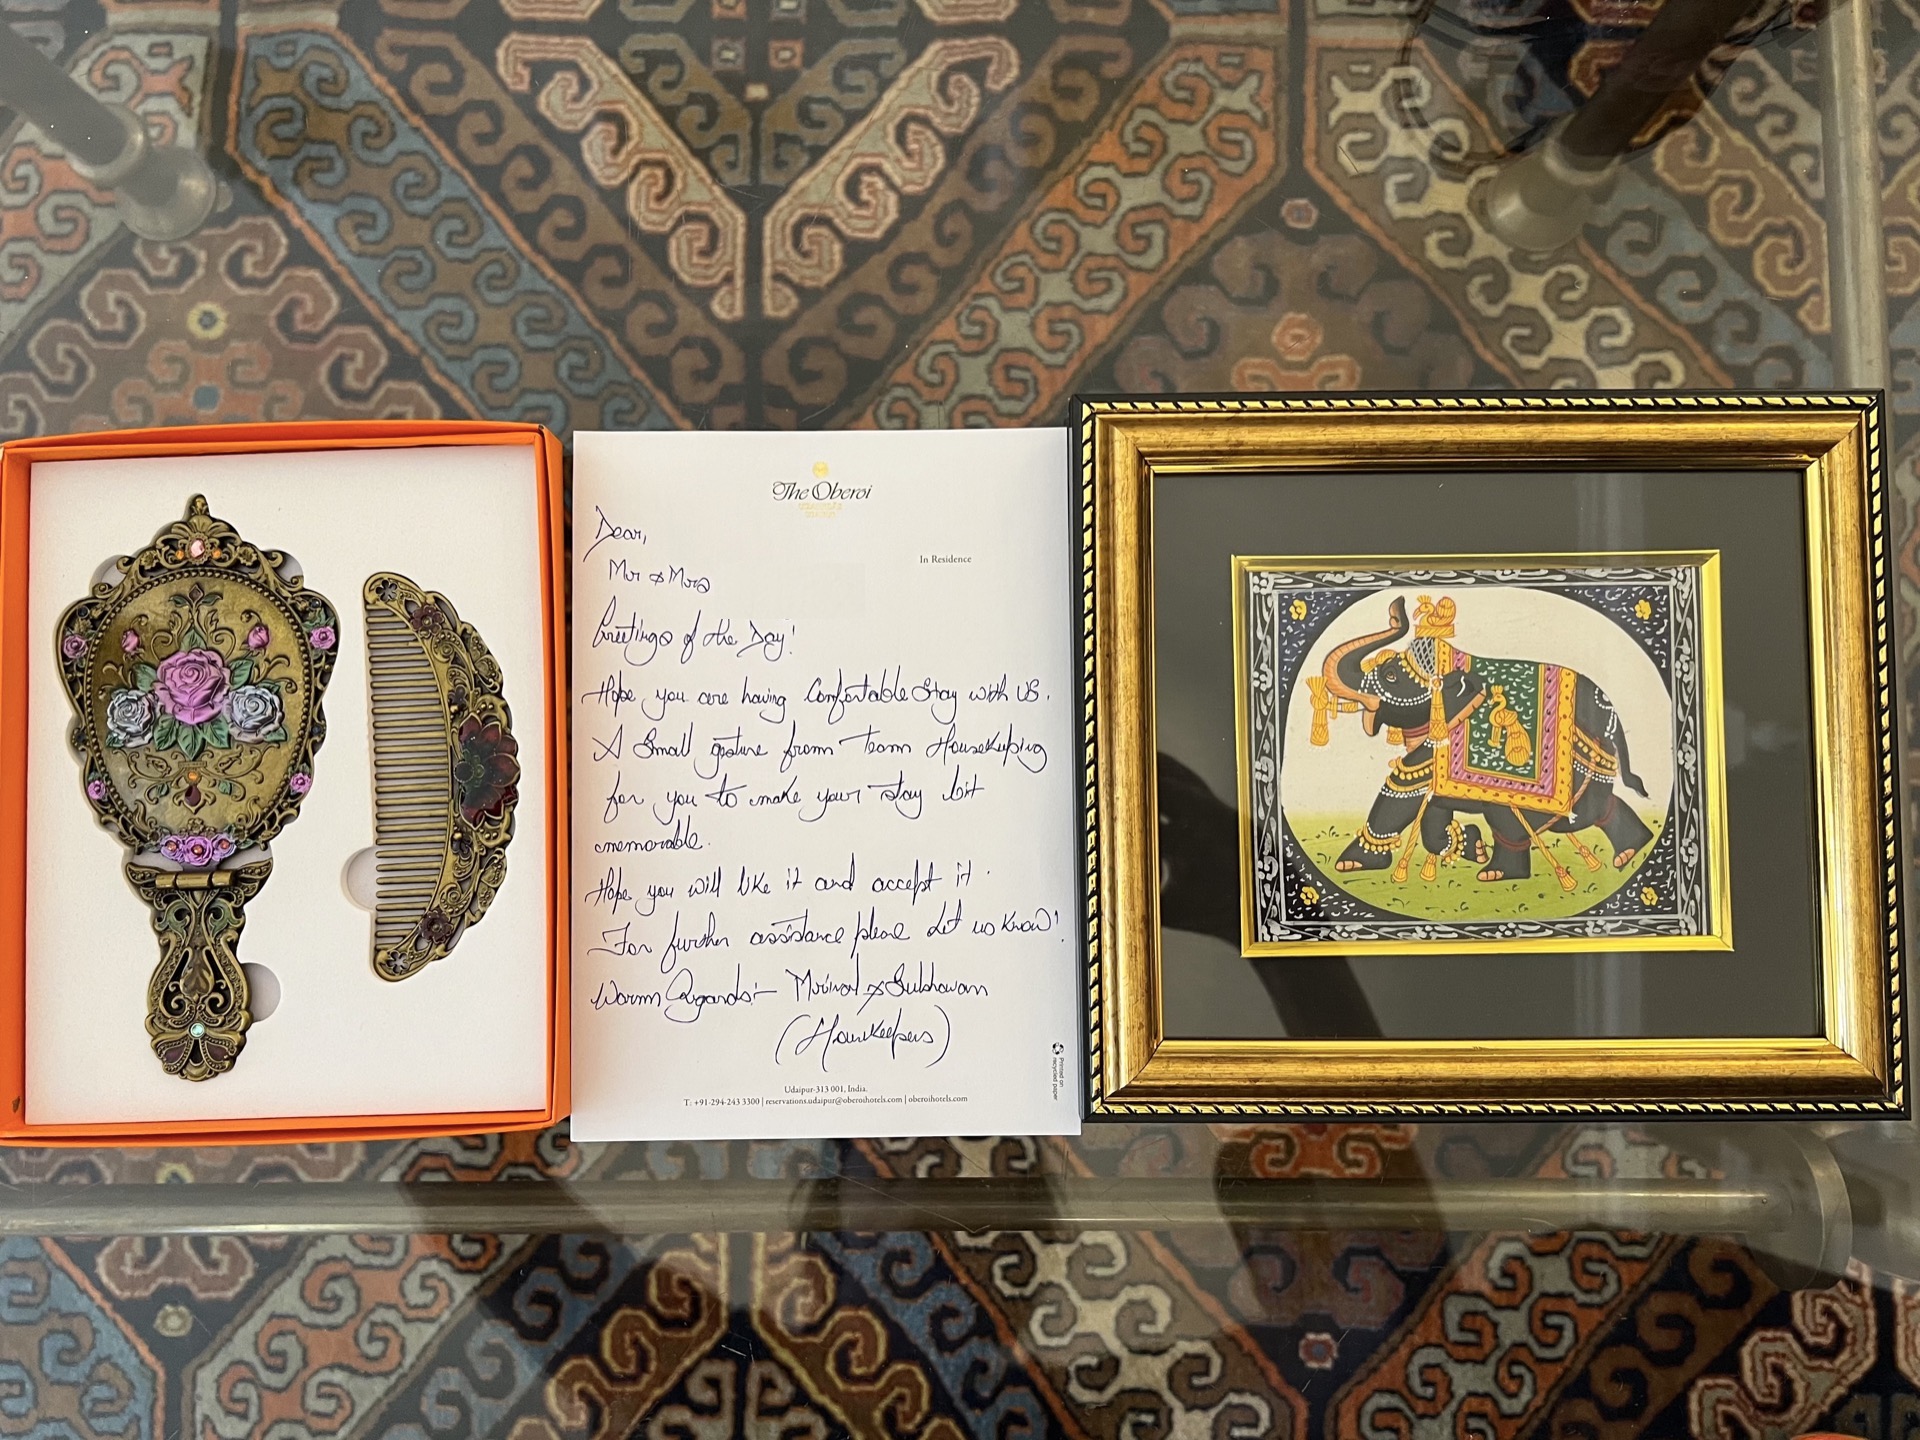 The Oberoi
UDAIVILAS
UDAIPUR
In Residence
Dear,
Mr & Mrs
Greetings of the Day!
Hope, you are having Comfortable Stay with us.
A small gesture from team Housekeeping
for you to make your stay bit
memorable.
Hope you will like it and accept it.
For further assistance please let us know!
Warm Regards:-
(Housekeepers)
Udaipur-313 001, India.
T: +91-294-243 3300 | reservations.udaipur@oberoihotels.com | oberoihotels.com
Printed on
recycled paper